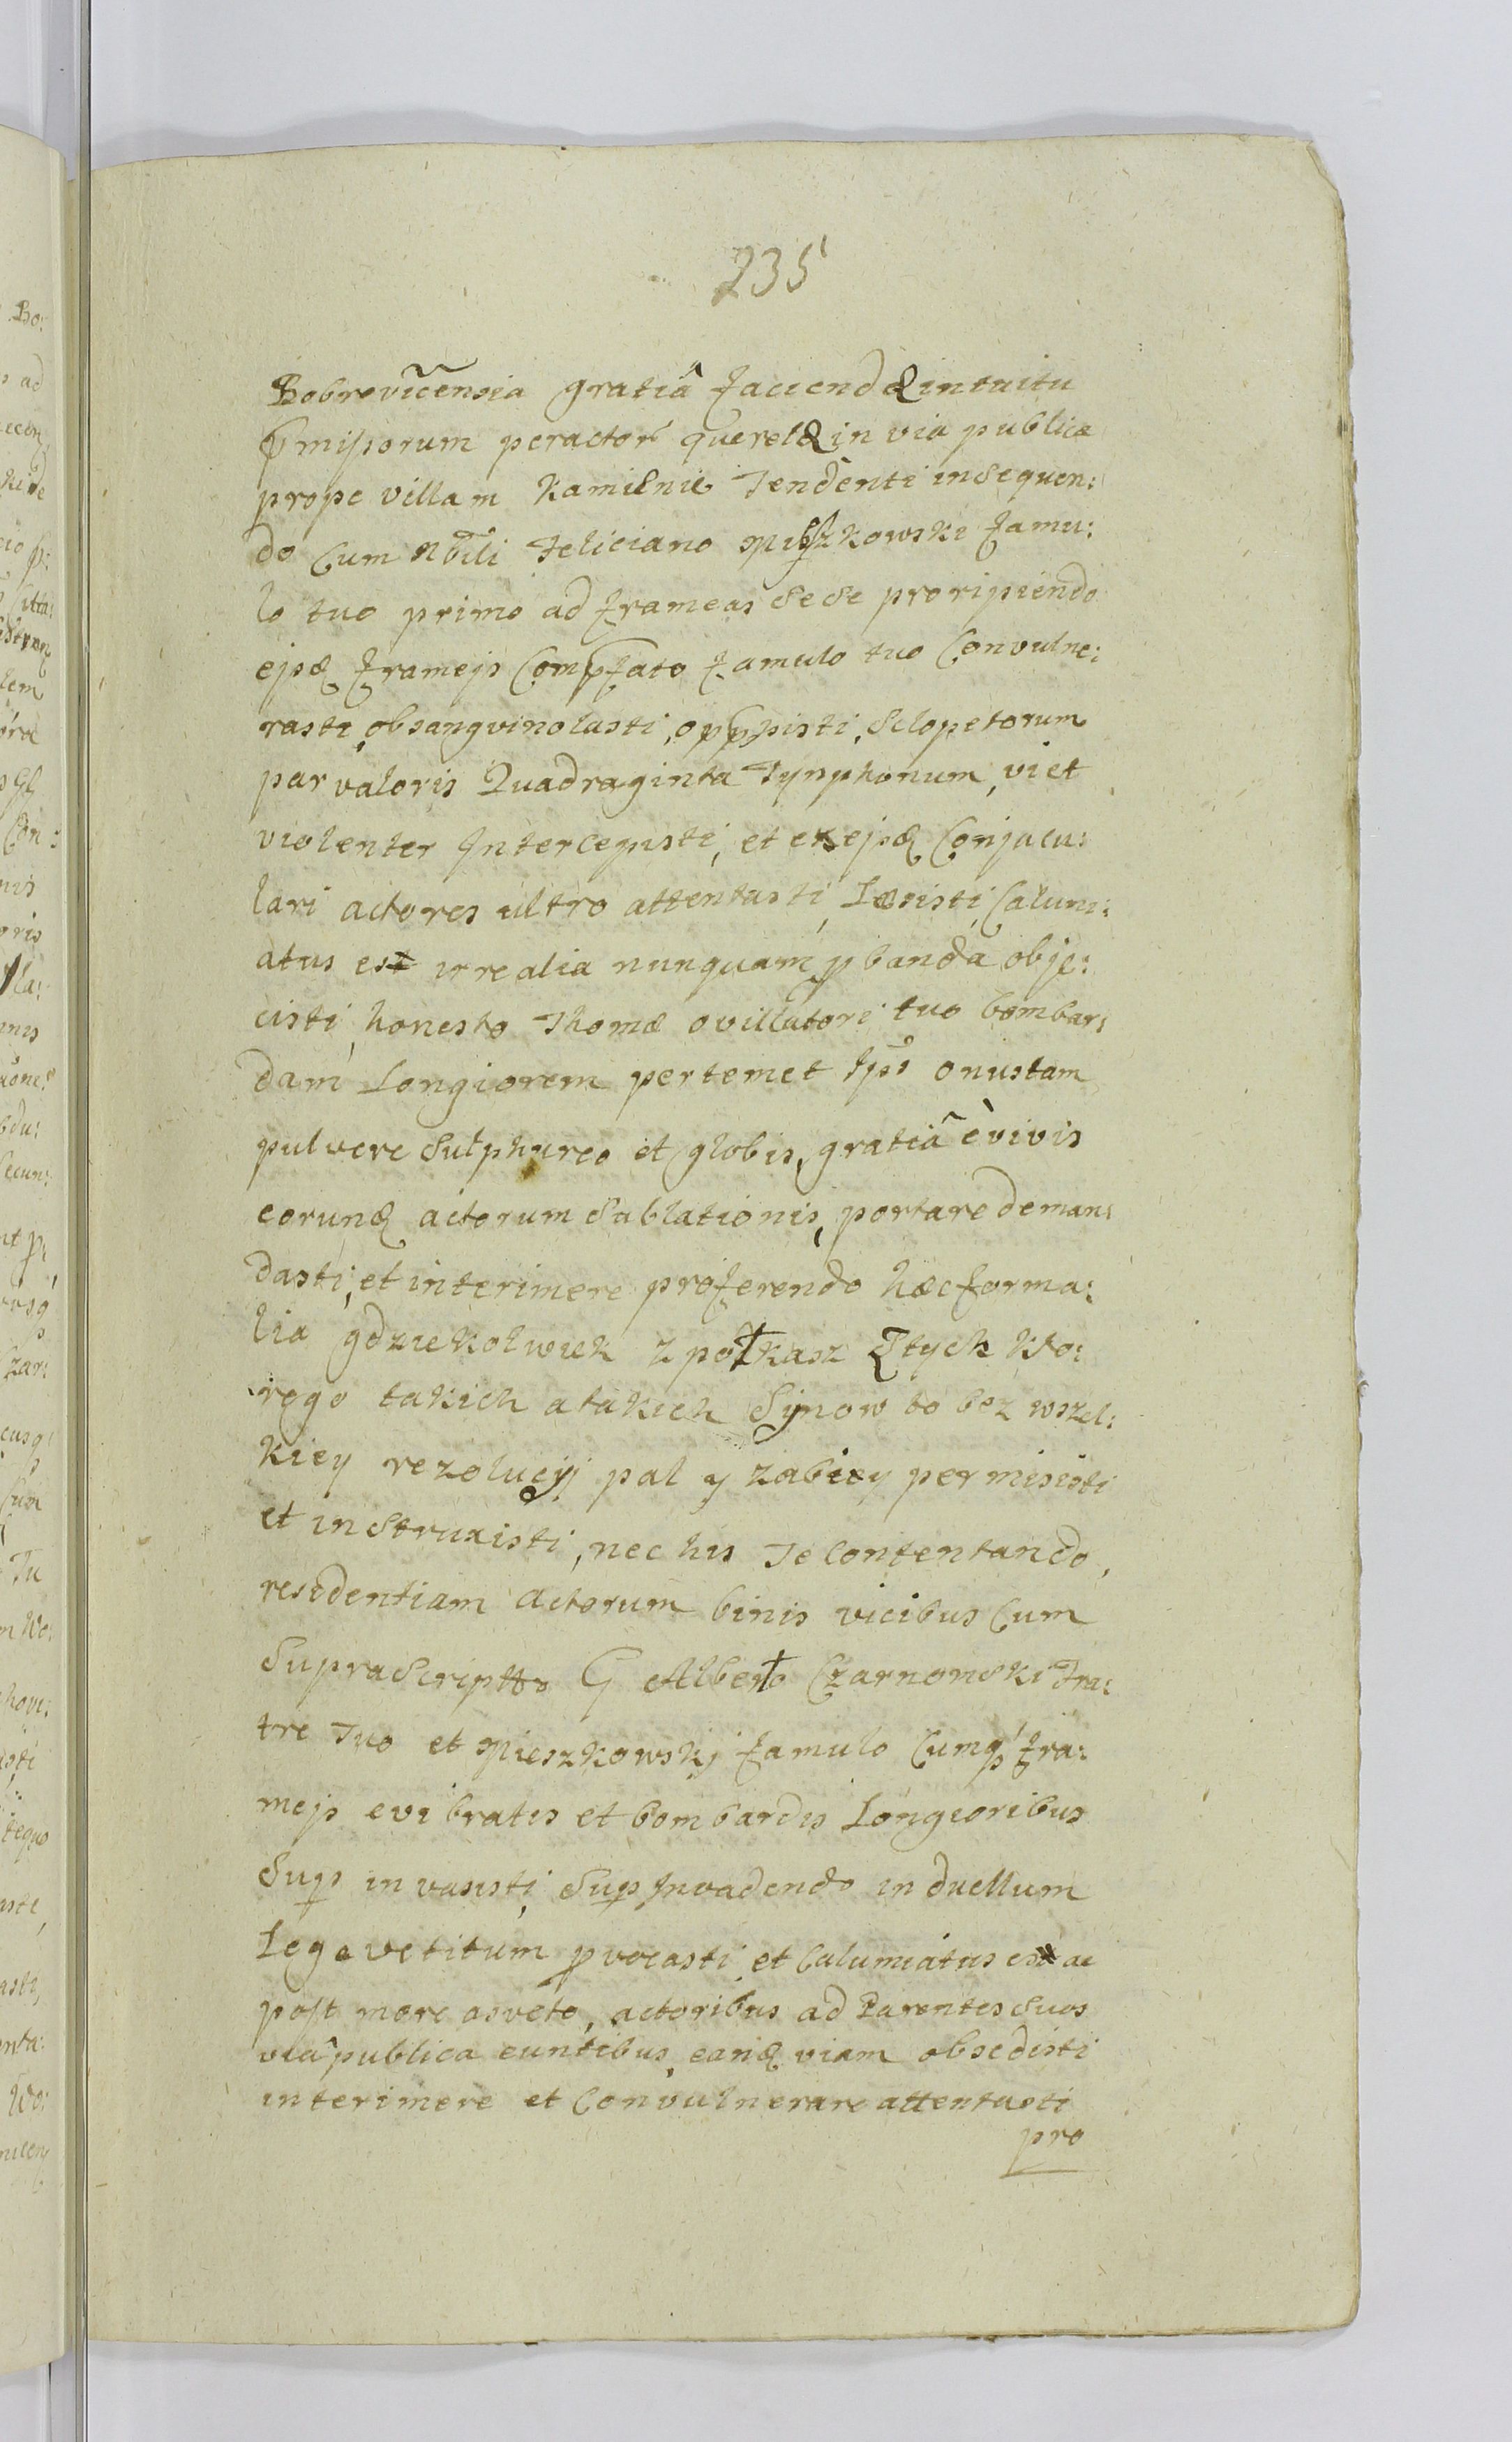 235
Bobrovicensia gratiâ faciendæ intuitu
præmissorum peractor querelæ in via publica
prope villam Kamienie Tendenti insequen:
do Cum Nobili Feliciano Pieszkowski famu:
lo tuo primo ad frameas sese proripiendo
ejsdem framejs Compræfato famulo tuo Convulne:
rasti, obsangvinolasti, oppressisti, Sclopetorum
par valoris Quadraginta Tynphonum, vi et
violenter Intercepisti, et ex ejsdem Conjacu:
lari actores ultro attentasti, Læsisti, Caluni:
atus es irrealia nunquam probanda obje:
cisti, honesto Thomæ ovillatori tuo bombar:
dam Longiorem pertemet Ipsi onustam
pulvere Sulphureo et globis, gratiâ è vivis
eorundem actorum Sublationis, portare deman:
dasti, et interimere proferendo hæc forma:
lia gdziekolwiek zpotkasz Ztych kto:
rego takich a takich Synow to bez wszel:
kiey rezolucyj pal y zabiey permisisti
et instruxisti, nec his Te Contentando,
residentiam actorum binis vicibus Cum
Suprascripto G Alberto Czarnowski Fra:
tre Tuo et Pieszkowskj famulo Cumq fra:
mejs evibratis et bombardis Longioribus
Super invasisti, Super Invadendo in duellum
Lege vetitum provocasti, et Calumiatus es ac
post more asveto, actoribus ad Parentes Suos
viâ publica euntibus, eandem viam obsedisti
interimere et Convulnerare attentasti
pro